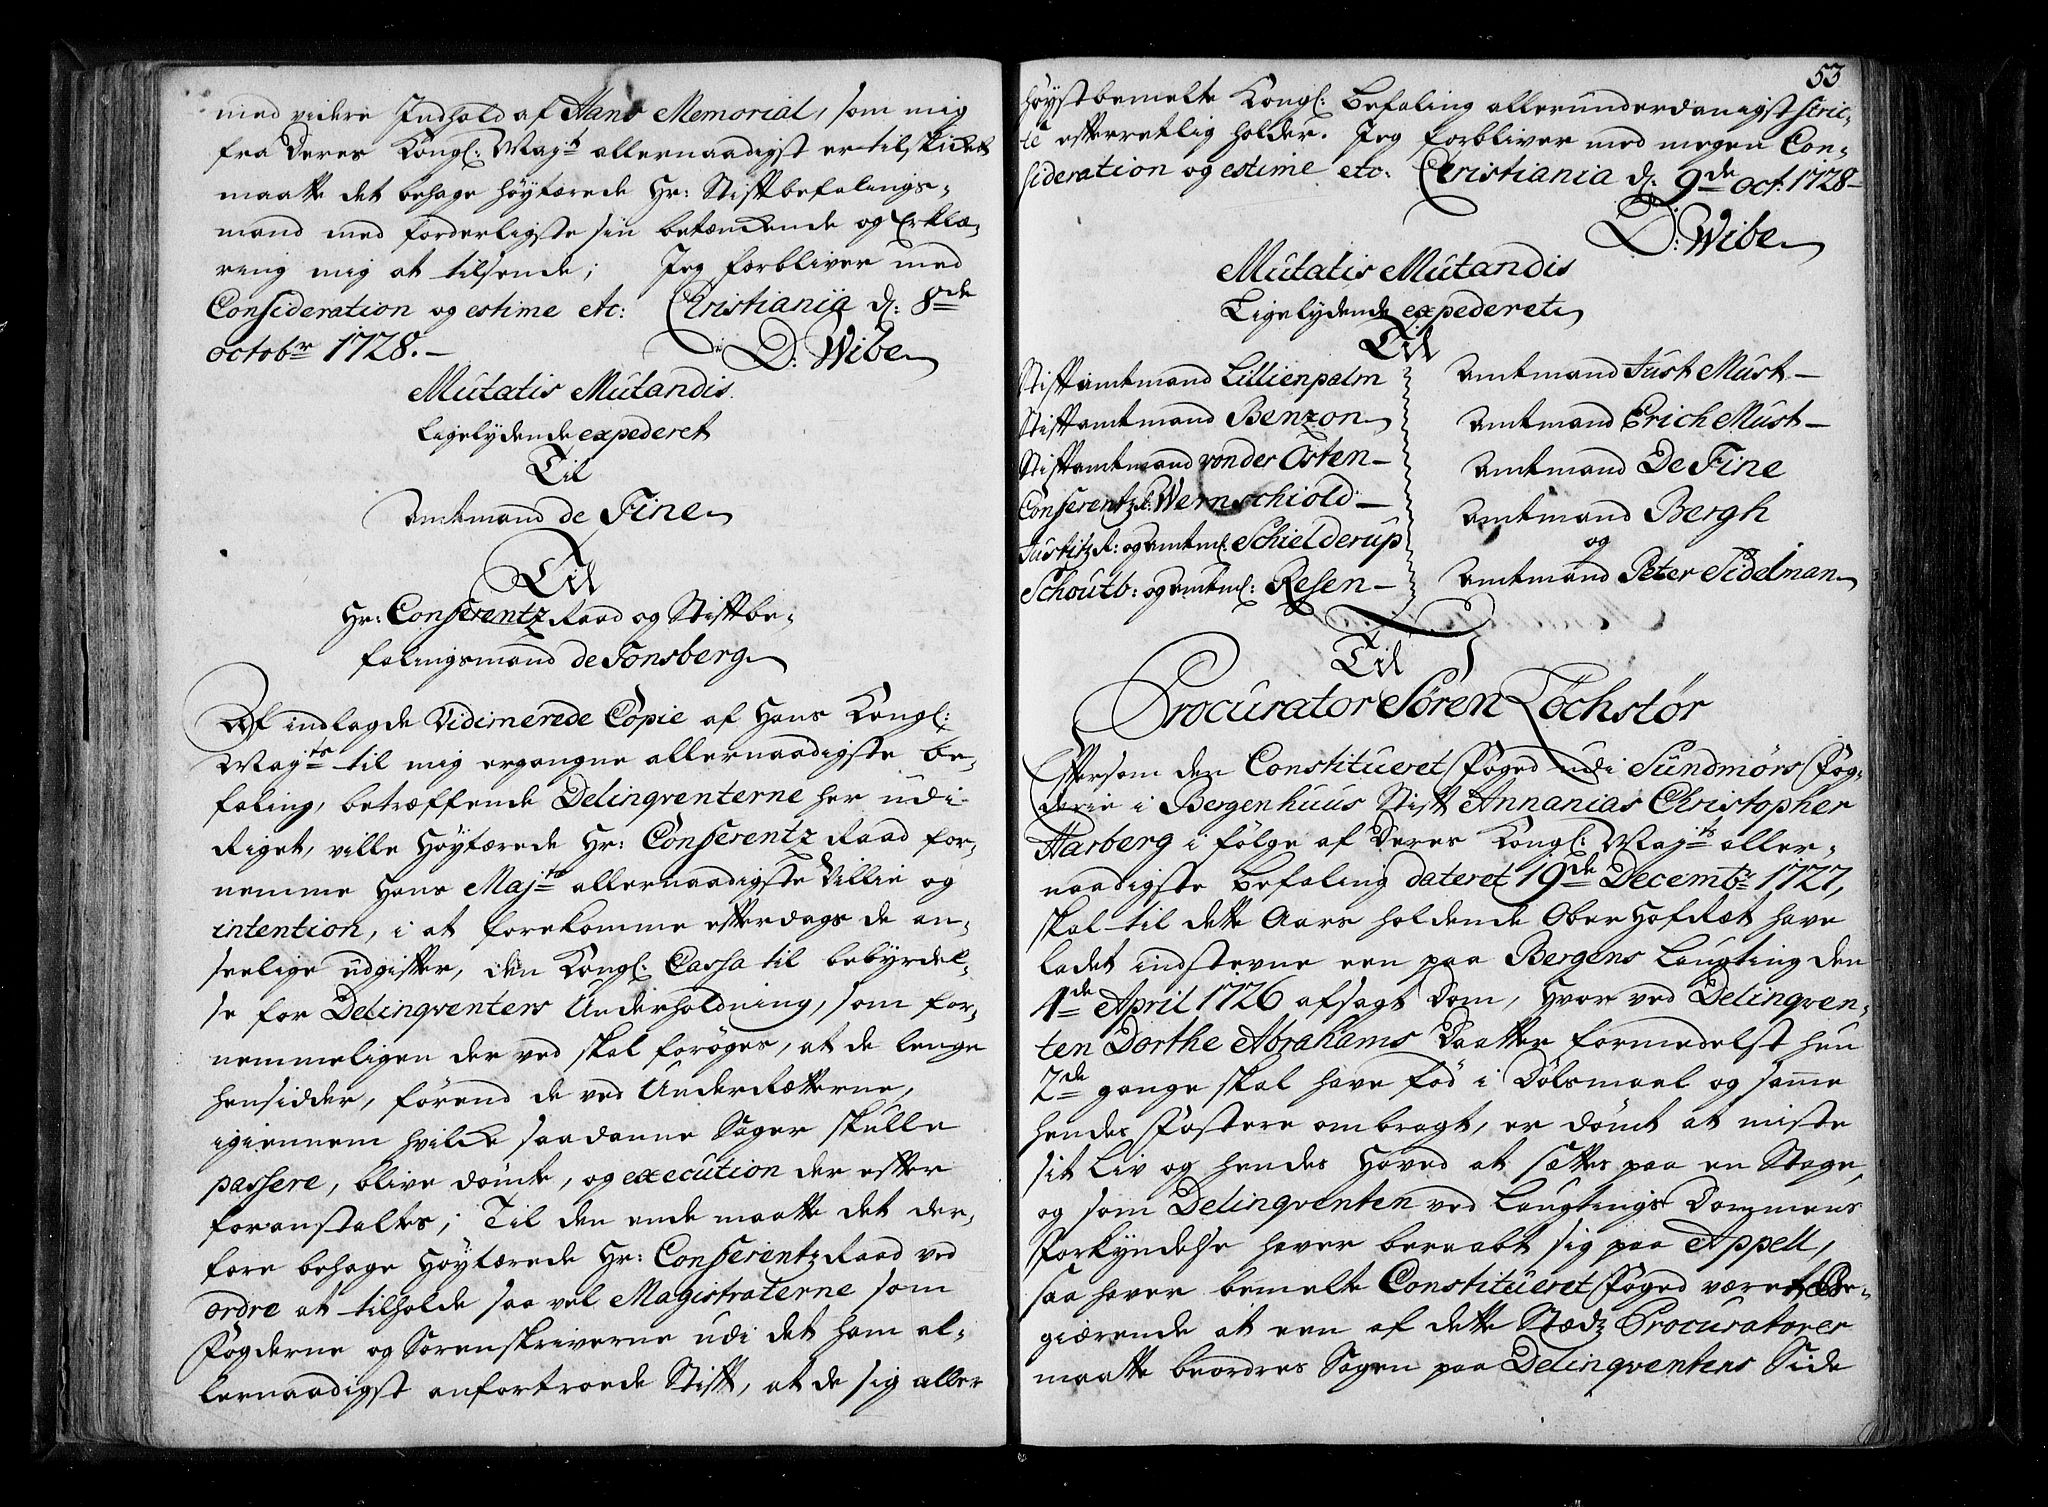 med videre Indhold af Hans Memorial, som mig
fra Deres Kongl: Maj:ts allernaadigst er tilskicket
maatte det behage høyærede Hr: Stiftbefalings-
mand med forderligste sin betænckende og Erklæ-
ring mig at tilsende; Jeg forbliver med
Consideration og estime etc: Christiania d: 8de
octobr 1728.–
D: Wibe
Mutatis Mutandis
Ligelydende expederet
Til
Amtmand de Fine
Til
Hr: Conferentz Raad og Stiftbe-
falingsmand de Tonsberg
Af indlagde Vidimerede Copie af Hans Kongl:
Maj:ts til mig ergangne allernaadigste be-
faling, betræffende Delinqventerne her udi
Riget, ville Høyærede Hr: Conferentz Raad for-
nemme Hans Maj:ts allernaadigste Villie og
intention, i at forekomme efterdags de an-
seelige udgifter, den Kongl: Cassa til bebyrdel-
se for Delinqventers Underholdning, som for-
nemmeligen der ved skal forøges, at de lenge
hensidder, førend de ved UnderRetterne,
igiennem hvilcke saadanne Sager skulle
passere, blive dømte, og execution der efter
foranstaltes; Til den ende maatte det der-
fore behage Høyærede Hr: Conferentz Raad ved
ordre at tilholde saa vel Magistraterne som
Fogderne og Sorenskriverne udi det ham al-
lernaadigst anfortroede Stift, at de sig aller
53
høystbemelte Kongl: Befaling allerunderdanigst stric-
te efterretlig holder. Jeg forbliver med megen Con-
sideration og estime etc: Christiania d: 9de Oct: 1728–
D: Wibe
Mutatis Mutandis
Ligelydende expederet
Til
Stiftamtmand Lillienpalm
Stiftamtmand Benzon
Stiftamtmand von der Osten–
Conferentz R: Wernschiold–
Justitz R: og Amtm: Schielderup
Schoutb: og Amtm: Resen–
Amtmand Just Must–
Amtmand Erich Must–
Amtmand De Fine
Amtmand Bergh
og
Amtmand Peter Tidelman
Til
Procurator Søren Løchstør
Eftersom den Constitueret Foged udi Sundmørs Fog-
derie i Bergenhuus Stift Annanias Christopher
Harberg i følge af Deres Kongl: Maj:ts aller-
naadigste Befaling dateret 19de Decembr 1727,
skal til dette Aars holdende OberHofRæt have
ladet indstevne een paa Bergens Laugting den
4de April 1726 afsagt Dom, hvor ved Delinqven-
ten Dorthe Abrahams Daatter formedelst hun
2de gange skal have fød i Dølsmaal og samme
hendes Fostere ombragt, er dømt at miste
sit Liv og hendes Hoved at sættes paa en Stage,
og som Delinqventen ved Laugtings Dommens
Forkyndelse haver beraabt sig paa Appell,
saa haver bemelte Constitueret Foged været Be-
giærende at een af dette Stædz Procuratorer
maatte beordres Sagen paa Delinqventens Side